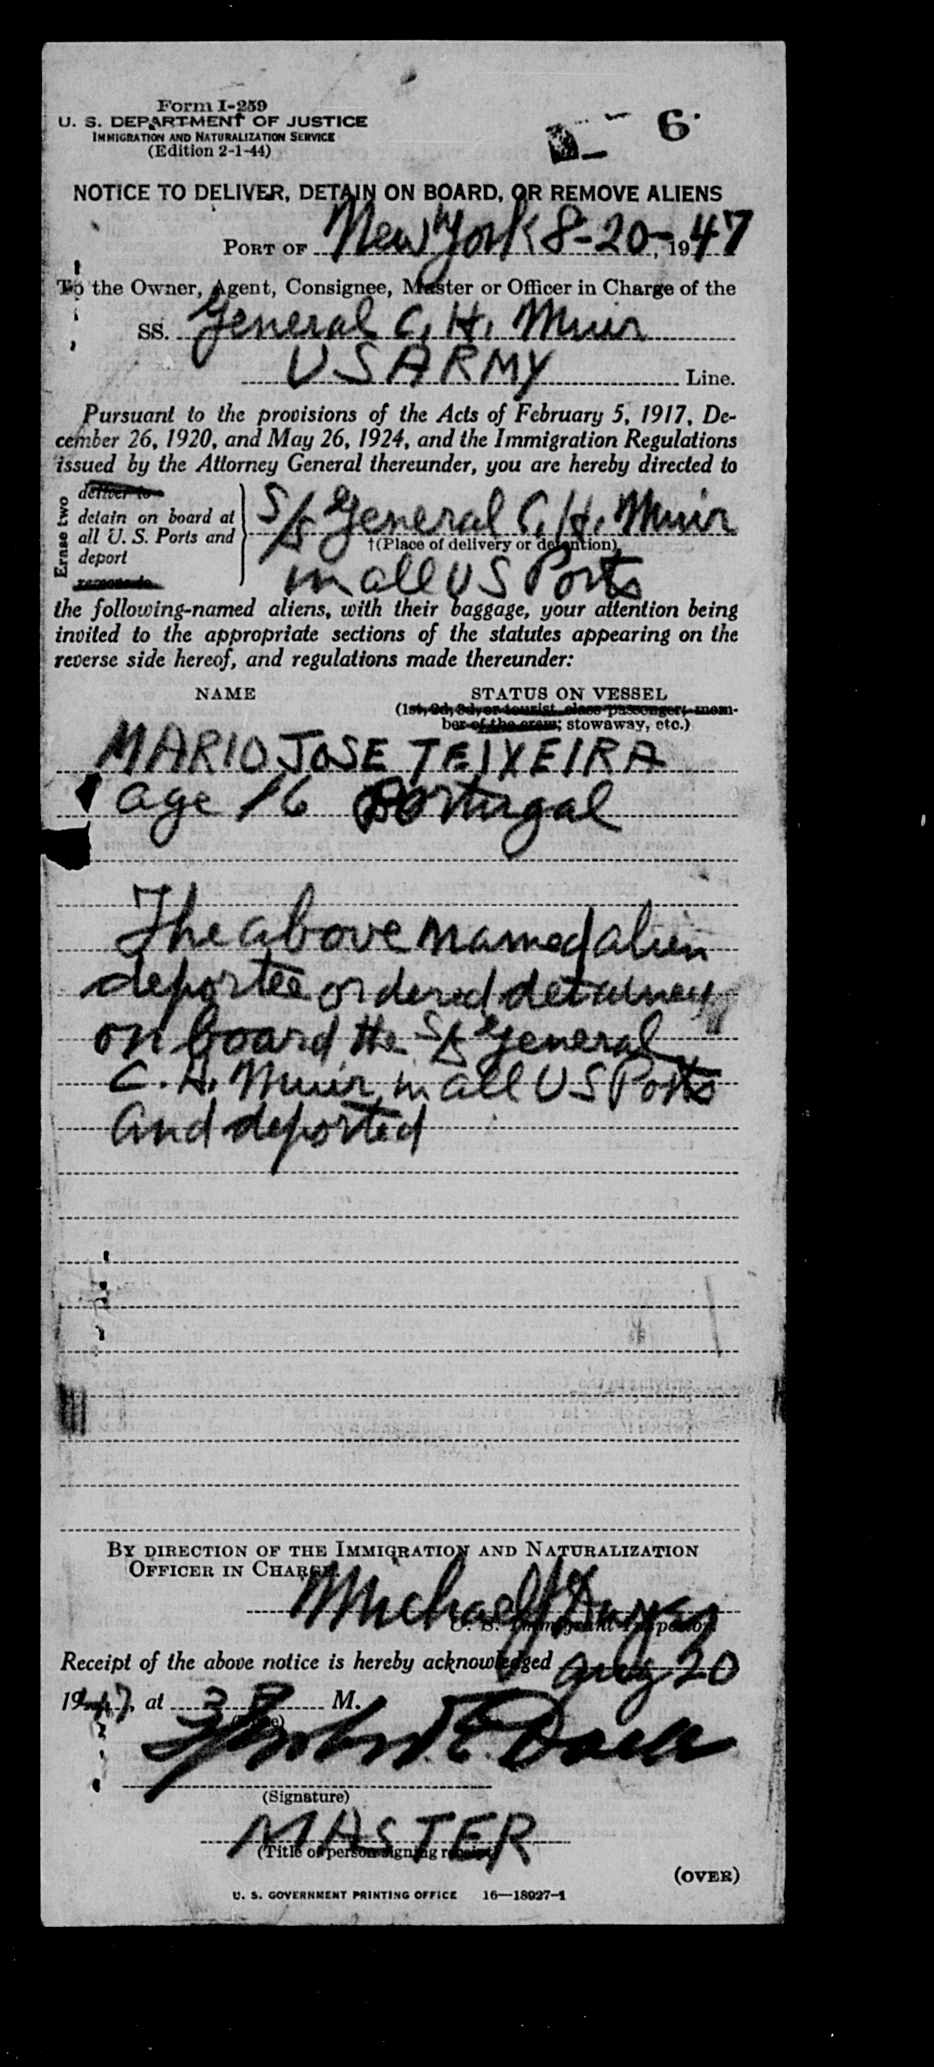 Form I-259
U. S. DEPARTMENT OF JUSTICE
IMMIGRATION AND NATURALIZATION SERVICE
(Edition 2-1-44)
6.
NOTICE TO DELIVER, DETAIN ON BOARD, OR REMOVE ALIENS
PORT OF New York 8-20-, 1947
To the Owner, Agent, Consignee, Master or Officer in Charge of the
SS. General C. H. Muir
US ARMY Line.
Pursuant to the provisions of the Acts of February 5, 1917, De-
cember 26, 1920, and May 26, 1924, and the Immigration Regulations
issued by the Attorney General thereunder, you are hereby directed to
Erase two
deliver to
detain on board at
all U. S. Ports and
deport
remove to
S/S General C. H. Muir
†(Place of delivery or detention)
in all US Ports
the following-named aliens, with their baggage, your attention being
invited to the appropriate sections of the statutes appearing on the
reverse side hereof, and regulations made thereunder:
NAME STATUS ON VESSEL
(1st, 2d, 3d, or tourist, class passenger; mem-
ber of the crew; stowaway, etc.)
MARIO JOSE TEIXEIRA
age 16 Portugal
The above named alien
deportee ordered detained
on board the S/S General
C. H. Muir in all US Ports
and deported
BY DIRECTION OF THE IMMIGRATION AND NATURALIZATION
OFFICER IN CHARGE.
Michael J.
U. S. Immigrant Inspector.
Receipt of the above notice is hereby acknowledged Aug 20
1947, at 3 P M.
(Signature)
MASTER
(Title of person signing receipt)
(OVER)
U. S. GOVERNMENT PRINTING OFFICE 16—18927-1